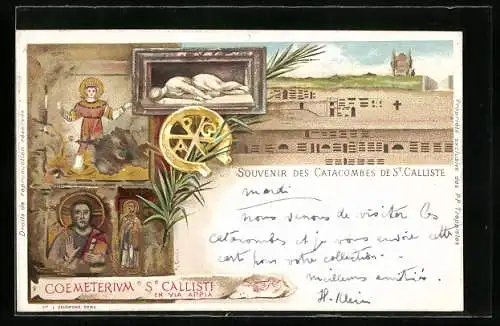 Droits de reproduction réservés
SOUVENIR DES CATACOMBES DE St. CALLISTE
Propriété exclusive des P.P. Trappistes
mardi
Nous venons de visiter les
catacombes et je vous envoie cette
carte pour votre collection.
meilleures amitiés
H. Klein
COEMETERIVM St CALLISTI
EN VIA APPIA